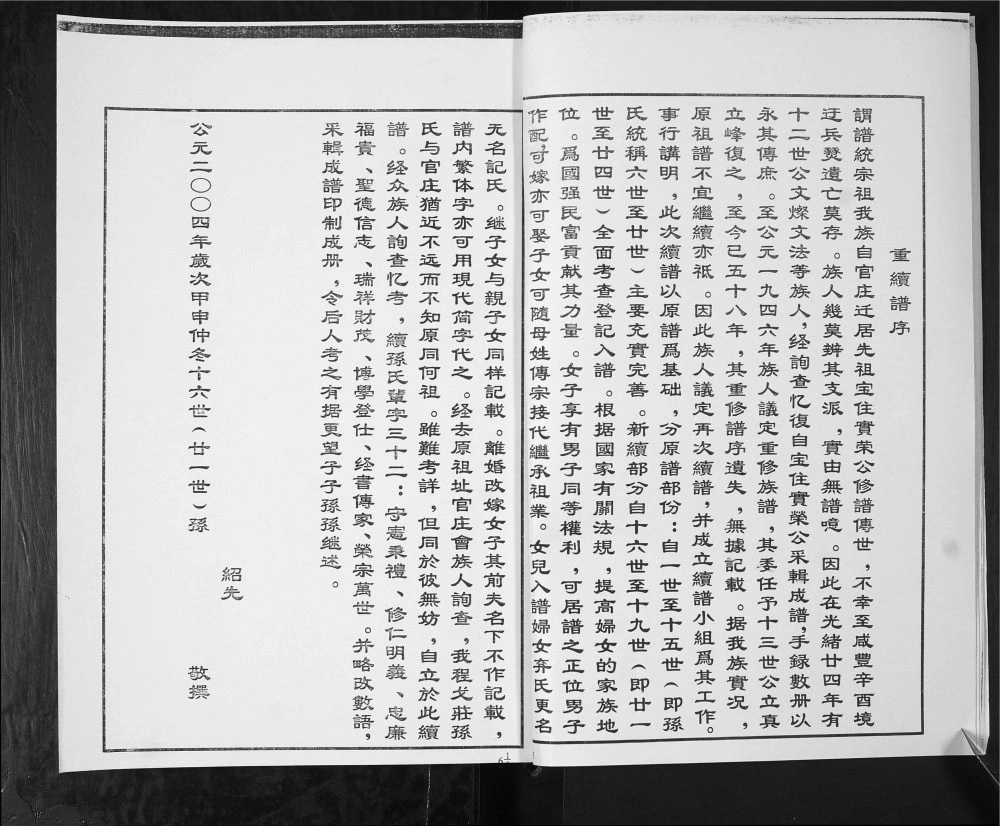 重續譜序
謂譜統宗祖我族自官庄迁居先祖宝住實荣公修譜傳世，不幸至咸豐辛酉境
迂兵燹遺亡莫存。族人幾莫辨其支派，實由無譜噫。因此在光緒廿四年有
十二世公文燦文法等族人，经詢查忆復自宝住實榮公采輯成譜，手録數册以
永其傳庶。至公元一九四六年族人議定重修族譜，其委任予十三世公立真
立峰復之，至今已五十八年，其重修譜序遺失，無據記載。据我族實况，
原祖譜不宜繼續亦祗。因此族人議定再次續譜，并成立續譜小組爲其工作。
事行講明，此次續譜以原譜爲基础，分原譜部份：自一世至十五世（即孫
氏統稱六世至廿世）主要充實完善。新續部分自十六世至十九世（即廿一
世至廿四世）全面考查登記入譜。根据國家有關法規，提高婦女的家族地
位。爲國强民富貢献其力量。女子享有男子同等權利，可居譜之正位男子
作配，可嫁亦可娶子女可隨母姓傳宗接代繼承祖業。女兒入譜婦女弃氏更名
无名記氏。继子女与親子女同样記載。離婚改嫁女子其前夫名下不作記載，
譜内繁体字亦可用現代简字代之。经去原祖址官庄會族人詢查，我程戈莊孫
氏与官庄猶近不远而不知原同何祖。雖難考詳，但同於彼無妨，自立於此續
譜。经众族人詢查忆考，續孫氏輩字三十二：守憲秉禮、修仁明義、忠廉
福貴、聖德信志、瑞祥財茂、博學登仕、经書傳家、榮宗萬世。并略改數語，
采輯成譜印制成册，令后人考之有据更望子子孫孫继述。
公元二〇〇四年歲次甲申仲冬十六世（廿一世）孫
紹先
敬撰